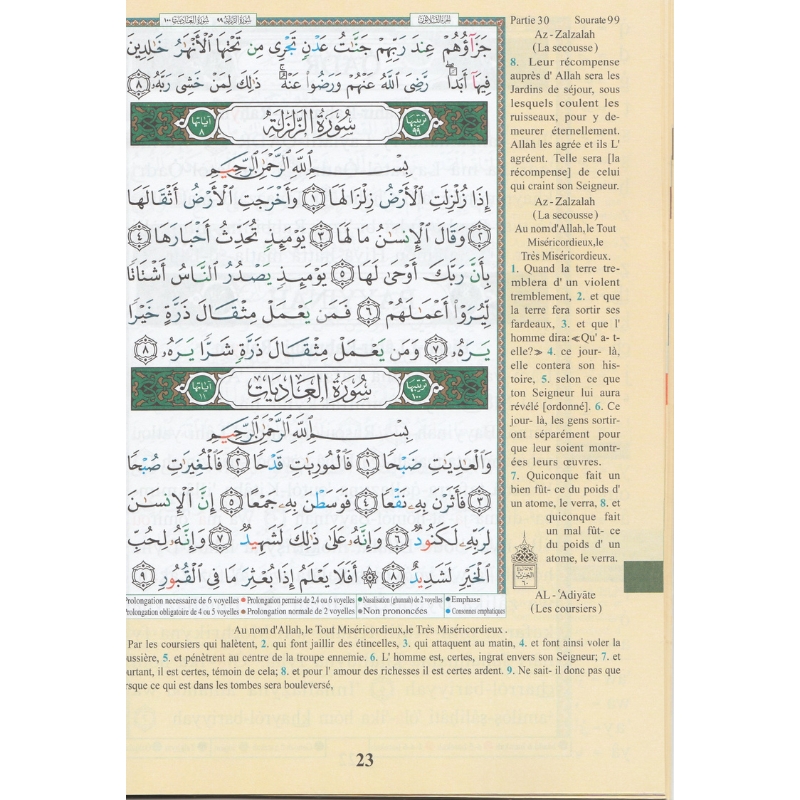 سورة الزلزلة ٩٩
Partie 30 Sourate 99
جَزَآؤُهُمْ عِندَ رَبِّهِمْ جَنَّٰتُ عَدْنٍ تَجْرِى مِن تَحْتِهَا ٱلْأَنْهَٰرُ خَٰلِدِينَ
فِيهَآ أَبَدًا ۖ رَّضِىَ ٱللَّهُ عَنْهُمْ وَرَضُوا۟ عَنْهُ ۚ ذَٰلِكَ لِمَنْ خَشِىَ رَبَّهُۥ ٨
ترتيبها ٩٩ سُورَةُ الزَّلْزَلَةِ آياتها ٨
بِسْمِ ٱللَّهِ ٱلرَّحْمَٰنِ ٱلرَّحِيمِ
إِذَا زُلْزِلَتِ ٱلْأَرْضُ زِلْزَالَهَا ١ وَأَخْرَجَتِ ٱلْأَرْضُ أَثْقَالَهَا
٢ وَقَالَ ٱلْإِنسَٰنُ مَا لَهَا ٣ يَوْمَئِذٍ تُحَدِّثُ أَخْبَارَهَا ٤
بِأَنَّ رَبَّكَ أَوْحَىٰ لَهَا ٥ يَوْمَئِذٍ يَصْدُرُ ٱلنَّاسُ أَشْتَاتًا
لِّيُرَوْا۟ أَعْمَٰلَهُمْ ٦ فَمَن يَعْمَلْ مِثْقَالَ ذَرَّةٍ خَيْرًا
يَرَهُۥ ٧ وَمَن يَعْمَلْ مِثْقَالَ ذَرَّةٍ شَرًّا يَرَهُۥ ٨
ترتيبها ١٠٠ سُورَةُ الْعَادِيَاتِ آياتها ١١
بِسْمِ ٱللَّهِ ٱلرَّحْمَٰنِ ٱلرَّحِيمِ
وَٱلْعَٰدِيَٰتِ ضَبْحًا ١ فَٱلْمُورِيَٰتِ قَدْحًا ٢ فَٱلْمُغِيرَٰتِ صُبْحًا
٣ فَأَثَرْنَ بِهِۦ نَقْعًا ٤ فَوَسَطْنَ بِهِۦ جَمْعًا ٥ إِنَّ ٱلْإِنسَٰنَ
لِرَبِّهِۦ لَكَنُودٌ ٦ وَإِنَّهُۥ عَلَىٰ ذَٰلِكَ لَشَهِيدٌ ٧ وَإِنَّهُۥ لِحُبِّ
ٱلْخَيْرِ لَشَدِيدٌ ٨ ۞ أَفَلَا يَعْلَمُ إِذَا بُعْثِرَ مَا فِى ٱلْقُبُورِ ٩
Az - Zalzalah
(La secousse)
8. Leur récompense
auprès d' Allah sera les
Jardins de séjour, sous
lesquels coulent les
ruisseaux, pour y de-
meurer éternellement.
Allah les agrée et ils L'
agréent. Telle sera [la
récompense] de celui
qui craint son Seigneur.
Az - Zalzalah
(La secousse)
Au nom d'Allah, le Tout
Miséricordieux,le
Très Miséricordieux.
1. Quand la terre tre-
mblera d' un violent
tremblement, 2. et que
la terre fera sortir ses
fardeaux, 3. et que l'
homme dira: ≪Qu' a- t-
elle?≫ 4. ce jour- là,
elle contera son his-
toire, 5. selon ce que
ton Seigneur lui aura
révélé [ordonné]. 6. Ce
jour- là, les gens sortir-
ont séparément pour
que leur soient montr-
ées leurs œuvres.
7. Quiconque fait un
bien fût- ce du poids d'
un atome, le verra, 8. et
quiconque fait
un mal fût- ce
du poids d' un
atome, le verra.
AL - 'Adiyâte
(Les coursiers)
Prolongation necessaire de 6 voyelles Prolongation permise de 2,4 ou 6 voyelles Nasalisation (ghunnah) de 2 voyelles Emphase
Prolongation obligatoire de 4 ou 5 voyelles Prolongation normale de 2 voyelles Non prononcées Consonnes emphatiques
Au nom d'Allah, le Tout Miséricordieux,le Très Miséricordieux .
Par les coursiers qui halètent, 2. qui font jaillir des étincelles, 3. qui attaquent au matin, 4. et font ainsi voler la
ussière, 5. et pénètrent au centre de la troupe ennemie. 6. L' homme est, certes, ingrat envers son Seigneur; 7. et
urtant, il est certes, témoin de cela; 8. et pour l' amour des richesses il est certes ardent. 9. Ne sait- il donc pas que
rsque ce qui est dans les tombes sera bouleversé,
23